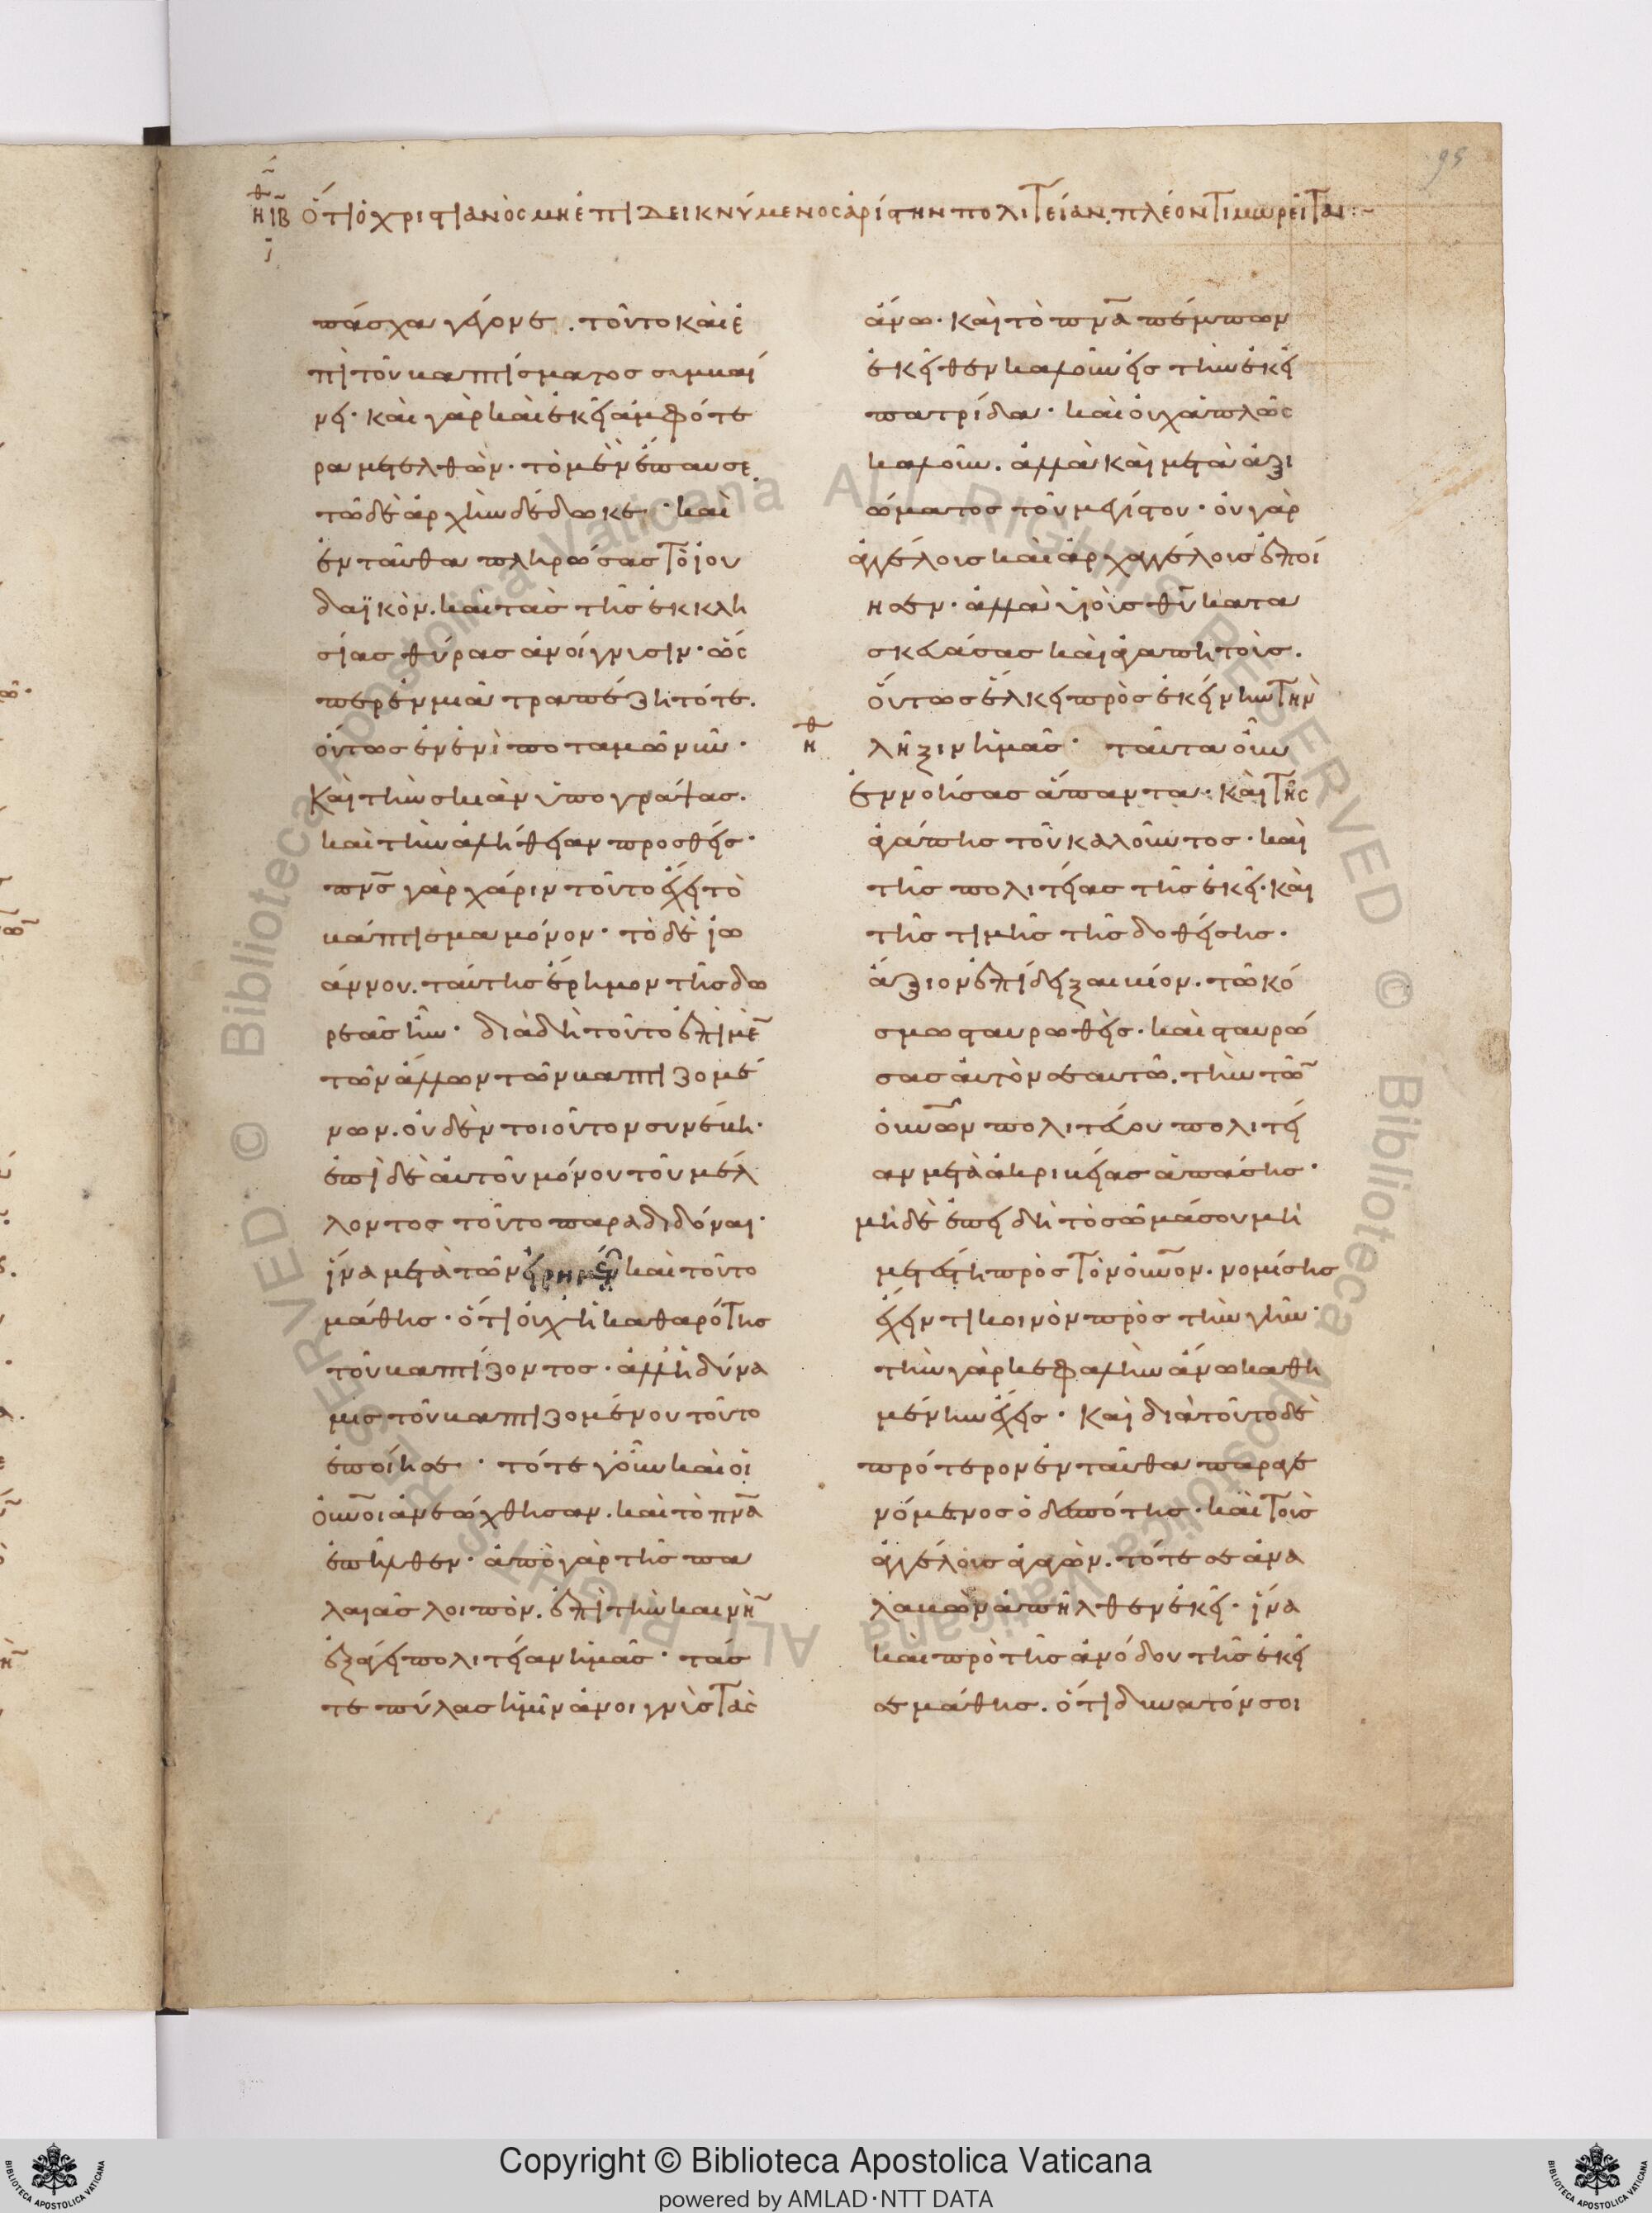 95
ΗΘ ΙΒ ὅτι ὁ χριστιανὸς μὴ ἐπιδεικνύμενος ἀρίστην πολιτείαν, πλέον τιμωρεῖται :~
πάσχα γέγονε. τοῦτο καὶ ἐ
πὶ τοῦ βαπτίσματος συμβαί
νει· καὶ γὰρ καὶ ἐκεῖ ἀμφότε
ρα μετελθὼν· τὸ μὲν ἔπαυσε,
τῶ δὲ ἀρχὴν δέδωκε· καὶ
ἐνταῦθα πληρώσας τὸ ἰου
δαϊκὸν. καὶ τὰς τῆς ἐκκλη
σίας θύρας ἀνοίγνυσιν· ὥς
περ ἐν μιᾶ τραπέζη τότε.
οὕτως ἐν ἑνὶ ποταμῶ νῦν·
Καὶ τὴν σκιὰν ὑπογράψας.
καὶ τὴν ἀλήθειαν προσθείς·
πνς γὰρ χάριν τοῦτο ἔχει τὸ
βάπτισμα μόνον· τὸ δὲ ἰω
άννου. ταύτης ἔρημον τῆς δω
ρεᾶς ἦν· διὰ δὴ τοῦτο ἐπὶ μὲ
τῶν ἄλλων τῶν βαπτιζομέ
νων. οὐδὲν τοιοῦτον συνέβη.
ἐπὶ δὲ αὐτοῦ μόνου τοῦ μέλ
λοντος τοῦτο παραδιδόναι·
ἵνα μετὰ τῶν εἰρημένων καὶ τοῦτο
μάθης· ὅτι οὐχ ἡ καθαρότης
τοῦ βαπτίζοντος· ἀλλ' ἡ δύνα
μις τοῦ βαπτιζομένου τοῦτο
ἐποίησε· τότε γοῦν καὶ οἱ
οὐνοι ἀνεώχθησαν. καὶ τὸ πνα
ἐπῆλθεν· ἀπὸ γὰρ τῆς πα
λαιᾶς λοιπὸν. ἐπὶ τὴν καινὴ
ἐξάγει πολιτείαν ἡμᾶς· τάς
τε πύλας ἡμῖν ἀνοιγνὺς τὰς
ἄνω. καὶ τὸ πνα πέμπων
ἐκεῖθεν καλοῦν εἰς τὴν ἐκεῖ
πατρίδα· καὶ οὐχ ἁπλῶς
καλοῦν. ἀλλὰ καὶ μετὰ ἀξι
ώματος τοῦ μεγίστου· οὐ γὰρ
ἀγγέλους καὶ ἀρχαγγέλους ἐποί
ησεν· ἀλλὰ υἱοὺς θυ κατα
σκευάσας καὶ ἀγαπητοὺς.
οὕτως ἕλκει πρὸς ἐκείνην τὴν
ΗΘ λῆξιν ἡμᾶς· ταῦτα οὖν
ἐννοήσας ἅπαντα· καὶ τῆς
ἀγάπης τοῦ καλοῦντος· καὶ
τῆς πολιτείας τῆς ἐκεῖ· καὶ
τῆς τιμῆς τῆς δοθείσης.
ἄξιον ἐπίδειξαι βίον. τῶ κό
σμω σταυρωθείς· καὶ σταυρώ
σας αὐτὸν σεαυτῶ. τὴν τῶ
οὐνῶν πολιτεύου πολιτεί
αν μετὰ ἀκριβείας ἁπάσης·
μὴ δὲ ἐπειδὴ τὸ σῶμά σου μὴ
μετέστη πρὸς τὸν οὐνον. νομίσης
ἔχειν τι κοινὸν πρὸς τὴν γῆν·
τὴν γὰρ κεφαλὴν ἄνω καθη
μένην ἔχεις· Καὶ διὰ τοῦτο δὲ
πρότερον ἐνταῦθα παραγε
νόμενος ὁ δεσπότης· καὶ τοὺς
ἀγγέλους ἀγαγὼν. τότε σε ἀνα
λαβὼν ἀπῆλθεν ἐκεῖ· ἵνα
καὶ πρὸ τῆς ἀνόδου τῆς ἐκεῖ
σε μάθης. ὅτι δυνατόν σοι
Copyright © Biblioteca Apostolica Vaticana
powered by AMLAD·NTT DATA